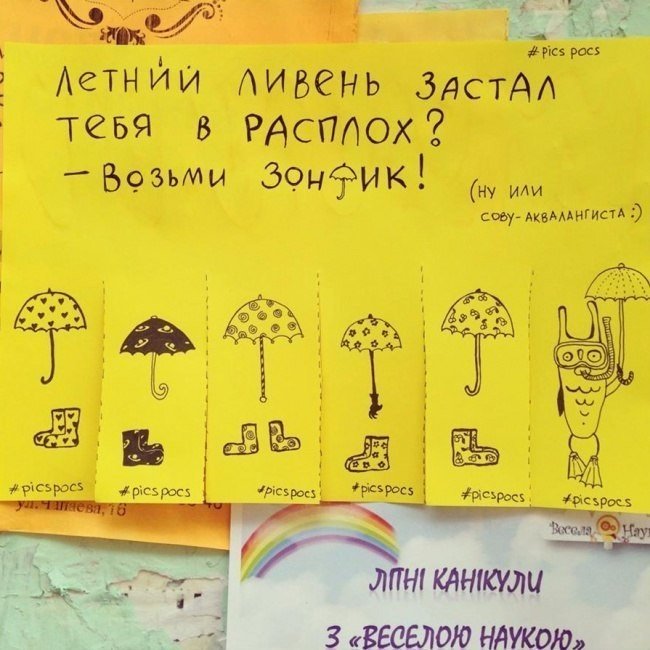 #pics pocs
Летний ливень застал
тебя в расплох?
- Возьми зонтик!
(ну или
сову-аквалангиста:)
#picspocs #picspocs #picspocs #picspocs #picspocs #picspocs
ул.Чапаева, 16
Весела Наук
ЛІТНІ КАНІКУЛИ
З «ВЕСЕЛОЮ НАУКОЮ»